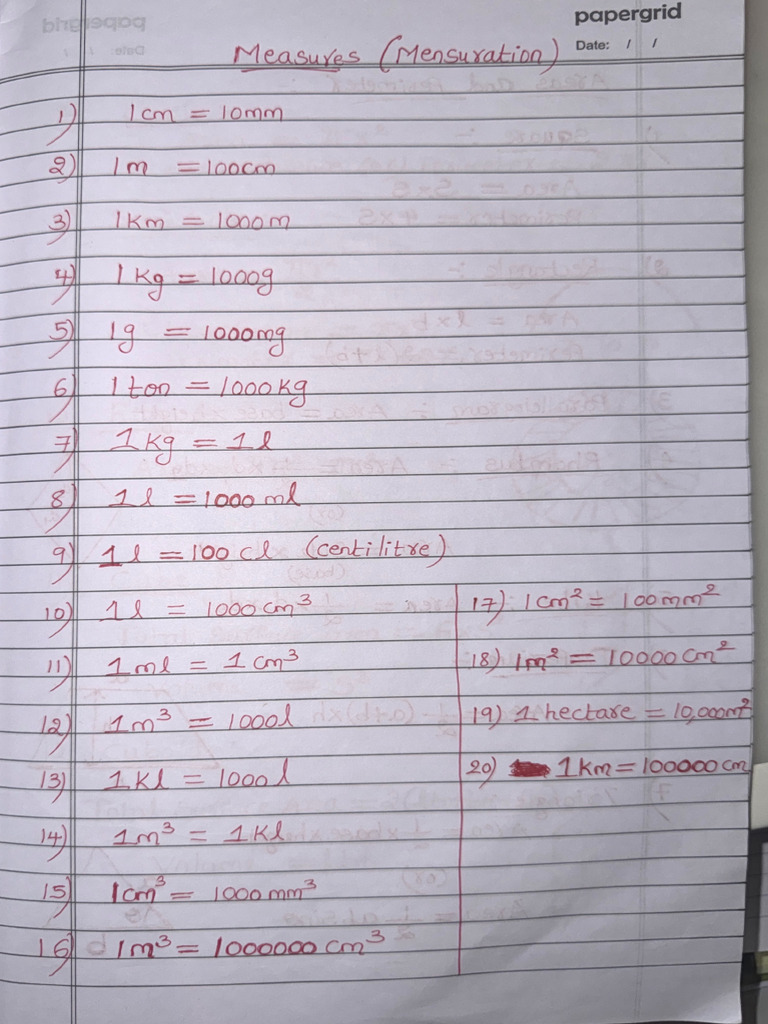 papergrid
Date: / /
Measures (Mensuration)
1) 1cm = 10mm
2) 1m = 100cm
3) 1km = 1000m
4) 1kg = 1000g
5) 1g = 1000mg
6) 1 ton = 1000kg
7) 1kg = 1l
8) 1l = 1000ml
9) 1l = 100cl (centilitre)
10) 1l = 1000cm³
11) 1ml = 1cm³
12) 1m³ = 1000l
13) 1kl = 1000l
14) 1m³ = 1kl
15) 1cm³ = 1000mm³
16) 1m³ = 1000000cm³
17) 1cm² = 100mm²
18) 1m² = 10000cm²
19) 1 hectare = 10,000m²
20) 1km = 100000cm